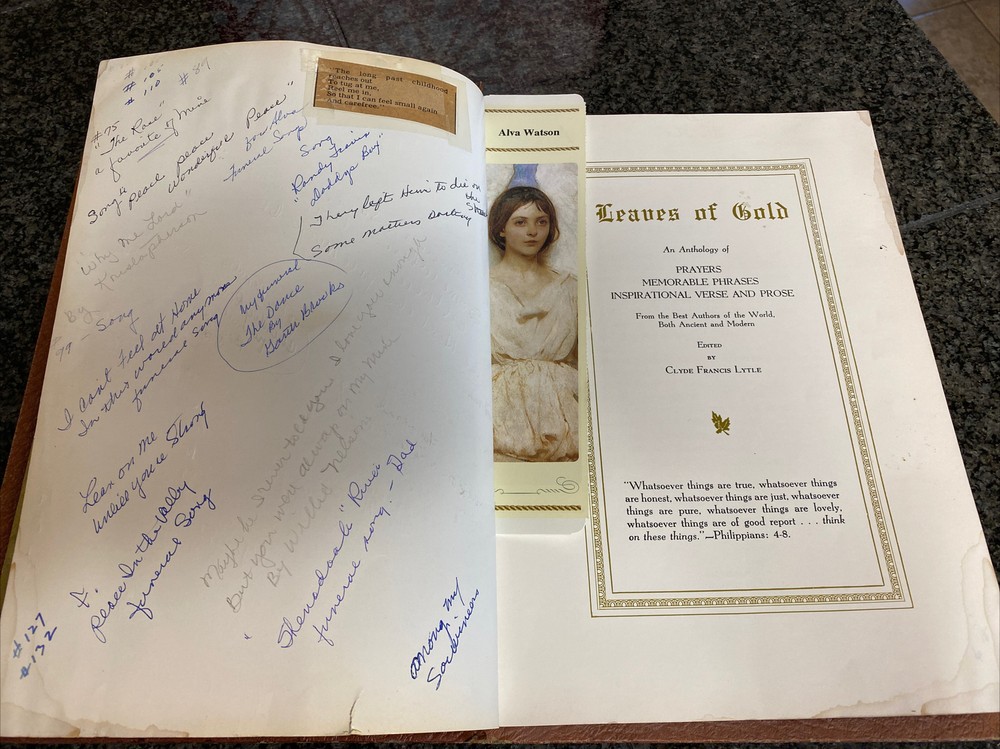 # 102
# 110
# 89
#75
"The Rose"
a favorite of Mine
Song "Peace peace
Wonderful Peace"
for Alva
Funeral Song
"The long past childhood
reaches out
To tug at me,
Reel me in,
So that I can feel small again
And carefree."
Song
"Randy Travis
Daddys Boy"
They left Him to die on
the
Some Mothers
Why Me Lord"
By Kristopherson
Song
I cant Feel at Home
In this world anymore
funeral Song
My funeral
The Dance
By
Garth Brooks
Lean on me
when you're Strong
Peace In the Vally
funeral Song
Maybe I never told you I love you enough
But you were always on my mind
By Willie Nelson
funeral song. - Dad
among my
# 127
# 132
Alva Watson
Leaves of Gold
An Anthology of
PRAYERS
MEMORABLE PHRASES
INSPIRATIONAL VERSE AND PROSE
From the Best Authors of the World,
Both Ancient and Modern
Edited
by
Clyde Francis Lytle
"Whatsoever things are true, whatsoever things
are honest, whatsoever things are just, whatsoever
things are pure, whatsoever things are lovely,
whatsoever things are of good report . . . think
on these things."—Philippians: 4-8.